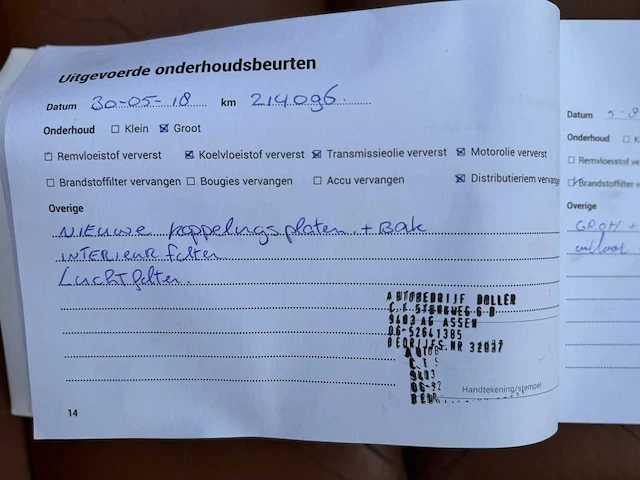 Uitgevoerde onderhoudsbeurten
Datum 30-05-18 km 214096.
Onderhoud ☐ Klein ☒ Groot
☐ Remvloeistof ververst ☒ Koelvloeistof ververst ☒ Transmissieolie ververst ☒ Motorolie ververst
☐ Brandstoffilter vervangen ☐ Bougies vervangen ☐ Accu vervangen ☒ Distributieriem vervangen
Overige
NIEUWE koppelingsplaten + Bak
INTERIEUR filter
Luchtfilter.
AUTOBEDRIJF DOLLER
9403 AG ASSEN
06-52641385
BEDRIJFS NR
Handtekening/stempel
14
Datum 5-8
Onderhoud ☐ K
☐ Remvloeistof ve
Brandstoffilter v
Overige
GROH +